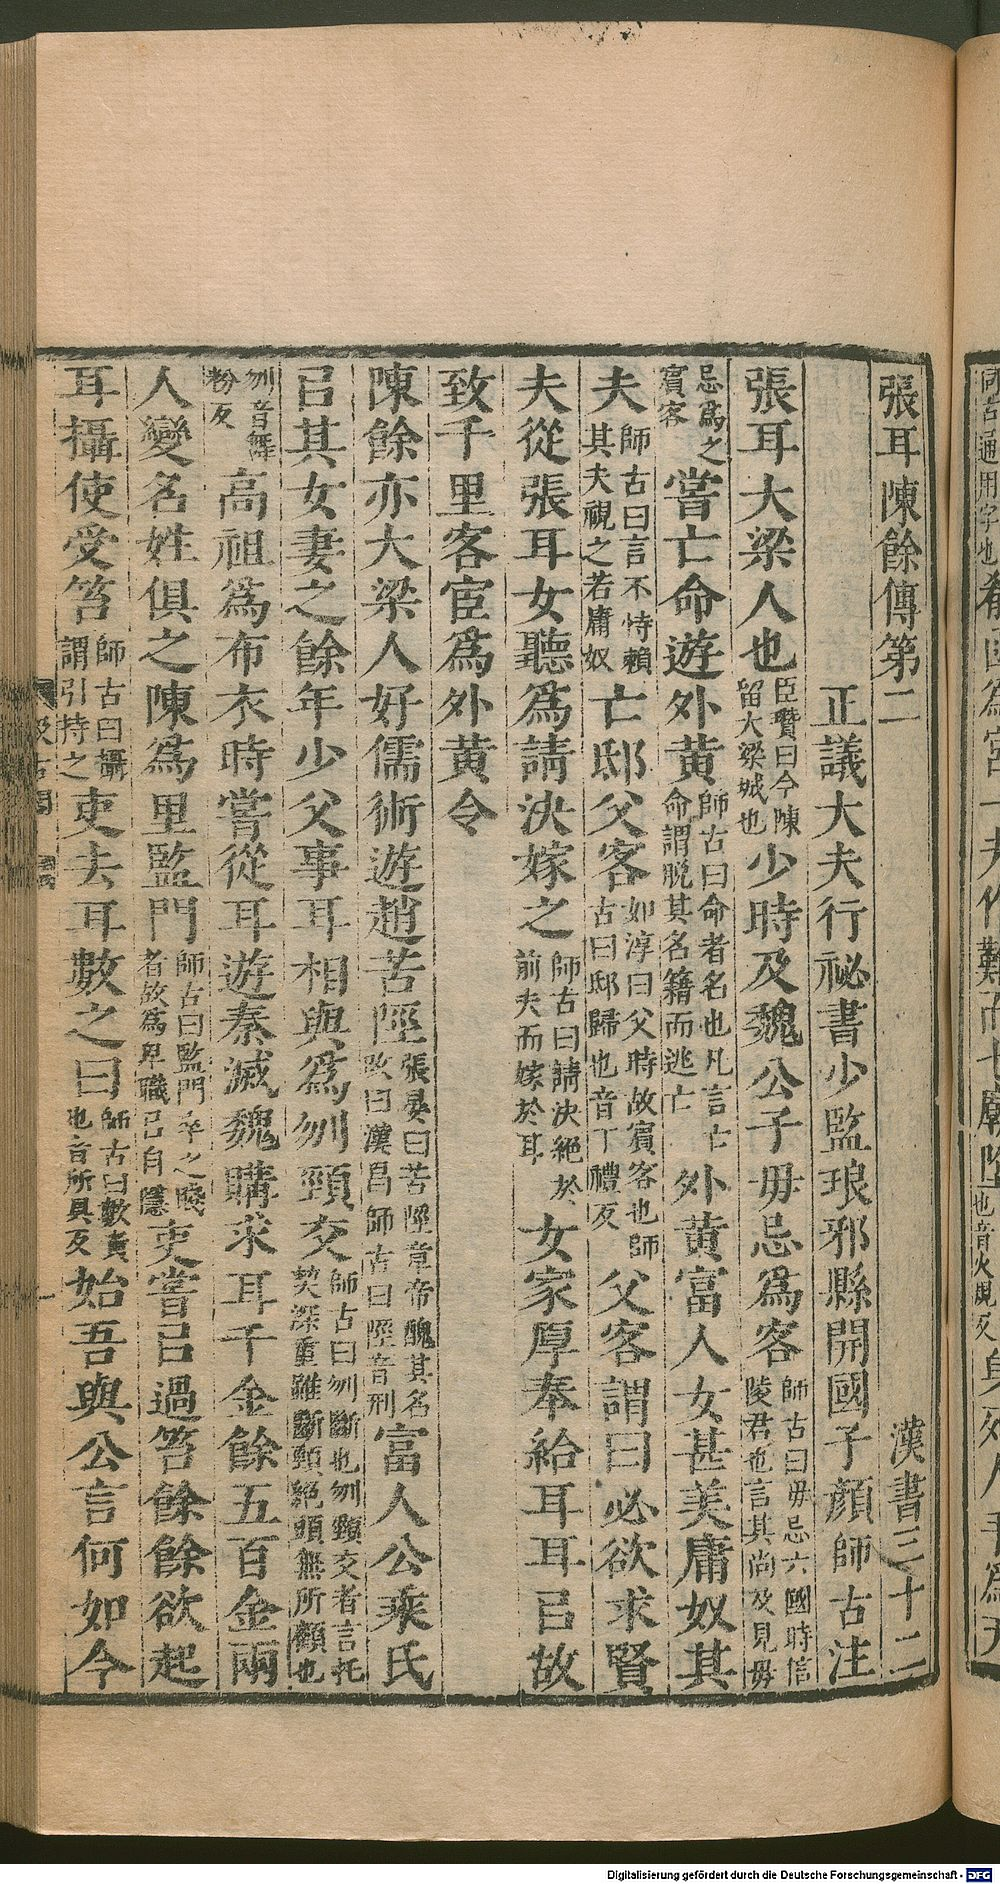 張耳陳餘傳第二 漢書三十二
正議大夫行祕書少監琅邪縣開國子顏師古注
張耳大梁人也臣瓚曰今陳留大梁城也少時及魏公子毋忌爲客師古曰毋忌六國時信陵君也言其尚及見毋
忌爲之賓客嘗亡命遊外黃師古曰命者名也凡言亡命謂脫其名籍而逃亡外黃富人女甚美庸奴其
夫師古曰言不恃賴其夫視之若庸奴亡邸父客如淳曰父時故賓客也師古曰邸歸也音丁禮反父客謂曰必欲求賢
夫從張耳女聽爲請決嫁之師古曰請決絕於前夫而嫁於耳女家厚奉給耳耳㠯故
致千里客宦爲外黃令
陳餘亦大梁人好儒術遊趙苦陘張晏曰苦陘章帝醜其名改曰漢昌師古曰陘音刑富人公乘氏
㠯其女妻之餘年少父事耳相與爲刎頸交師古曰刎斷也刎頸交者言託契深重雖斷頸絕頭無所顧也
刎音舞粉反高祖爲布衣時嘗從耳遊秦滅魏購求耳千金餘五百金兩
人變名姓俱之陳爲里監門師古曰監門卒之賤者故爲卑職㠯自隱吏嘗㠯過笞餘餘欲起
耳攝使受笞師古曰攝謂引持之吏去耳數之曰師古曰數責也音所具反始吾與公言何如今
汲古閣
同古通用字也
也音火規反